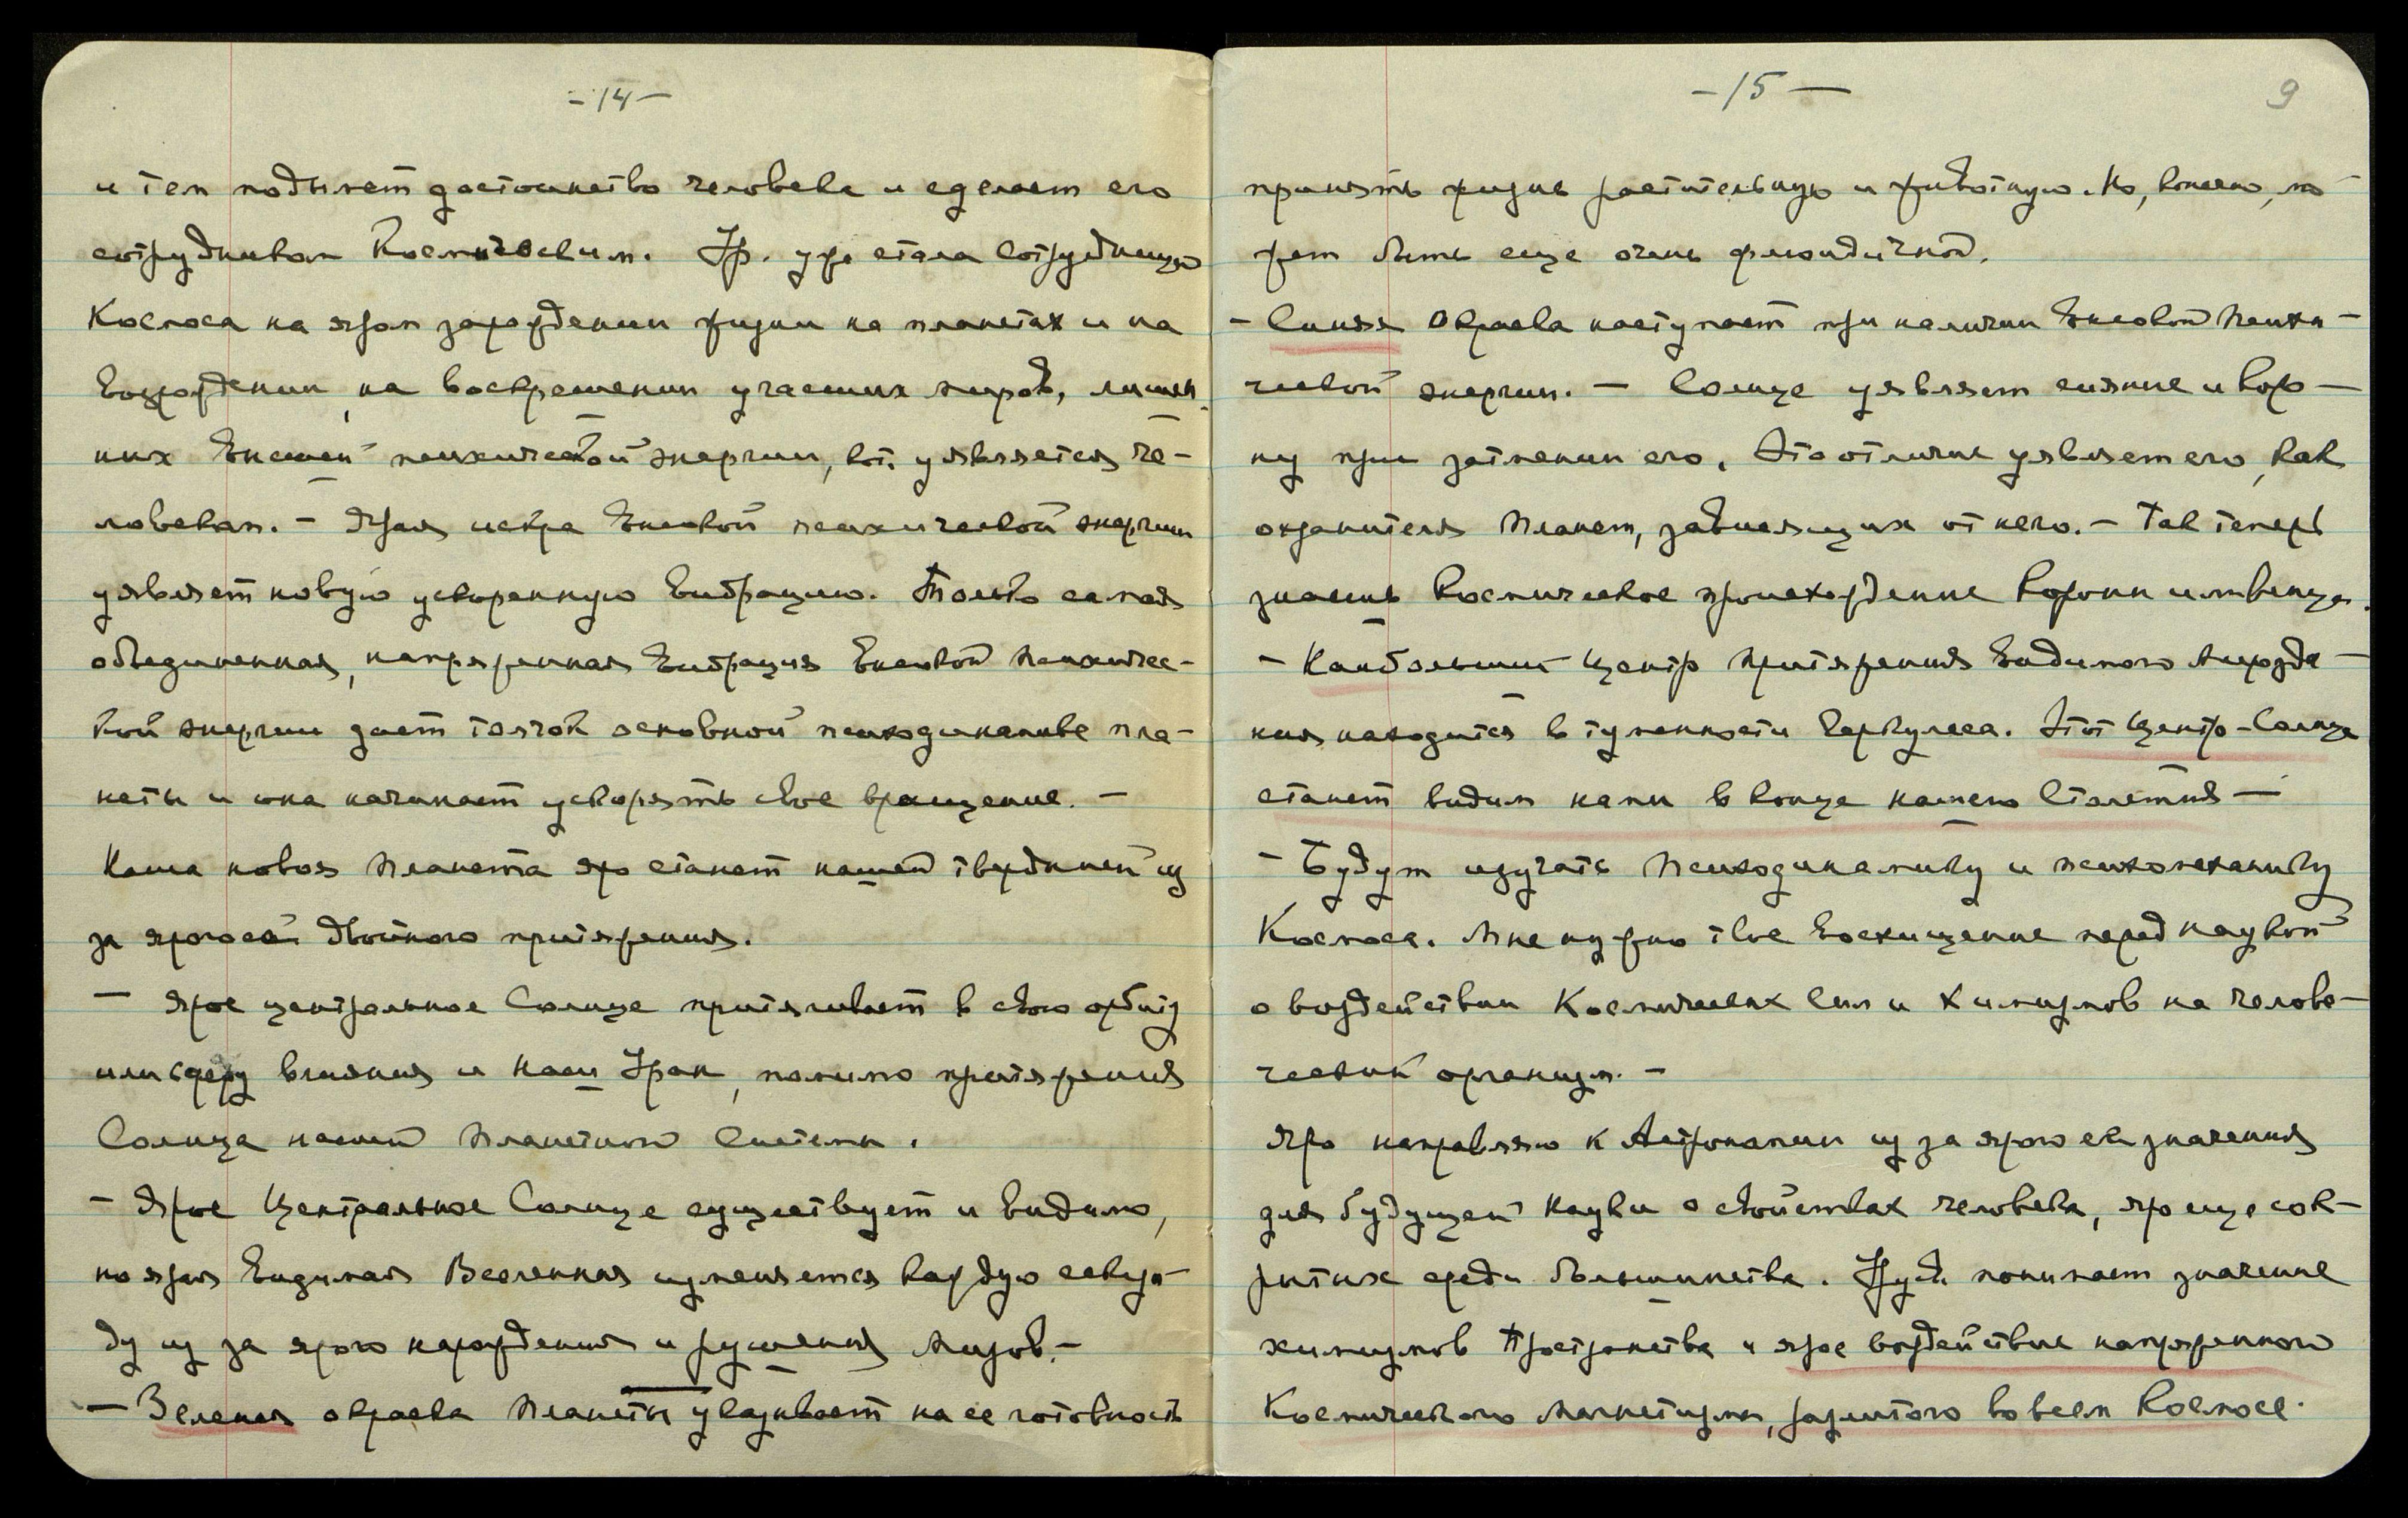 - 14 -
и тем подымет достоинство человека и сделает его
сотрудником Космическим. Ур. уже стала сотрудницею
Космоса на яром зарождении жизни на планетах и на
возрождении, на воскрешении угасших миров, лишен
ных высшей психической энергии, кот. уявляется че-
ловекам. - Ярая искра высокой психической энергии
уявляет новую ускоренную вибрацию. Только самая
объединенная, напряженная вибрация высокой психичес-
кой энергии дает толчок основной психодинамике пла-
неты и она начинает ускорять свое вращение. -
Наша новая планета яро станет нашей твердыней из
за ярого ей двойного притяжения.
- Ярое центральное Солнце притягивает в свою орбиту
или сферу влияния и наш Уран, помимо притяжения
Солнца нашей планетной системы.
- Ярое Центральное Солнце существует и видимо,
но ярая видимая Вселенная изменяется каждую секун-
ду из за ярого нарождения и рушения миров. -
- Зеленая окраска планеты указывает на ее готовность
- 15 -
9
принять жизнь растительную и животную. Но, конечно, мо
жет быть еще очень флюидичной.
- Синяя окраска наступает при наличии высокой психи-
ческой энергии. - Солнце уявляет сияние и коро-
ну при затмении его. Это отличие уявляет его, как
охранителя планет, зависящих от него. - Так теперь
знаешь космическое происхождение короны или венца.
- Наибольший центр притяжения видимого мирозда-
ния находится в туманности Геркулеса. Этот Центр-Солнце
станет видим нами в конце нашего столетия -
- Будут изучать психодинамику и психомеханику
Космоса. Мне нужно твое восхищение перед наукой
о воздействии Космических сил и химизмов на челове-
ческий организм. -
Яро направляю к Астрономии из за ярого ее значения
для будущей науки о свойствах человека, яро еще сок-
рытых среди большинства. понимает значение
химизмов Пространства и ярое воздействие напряженного
Космического магнетизма, разлитого во всем Космосе.